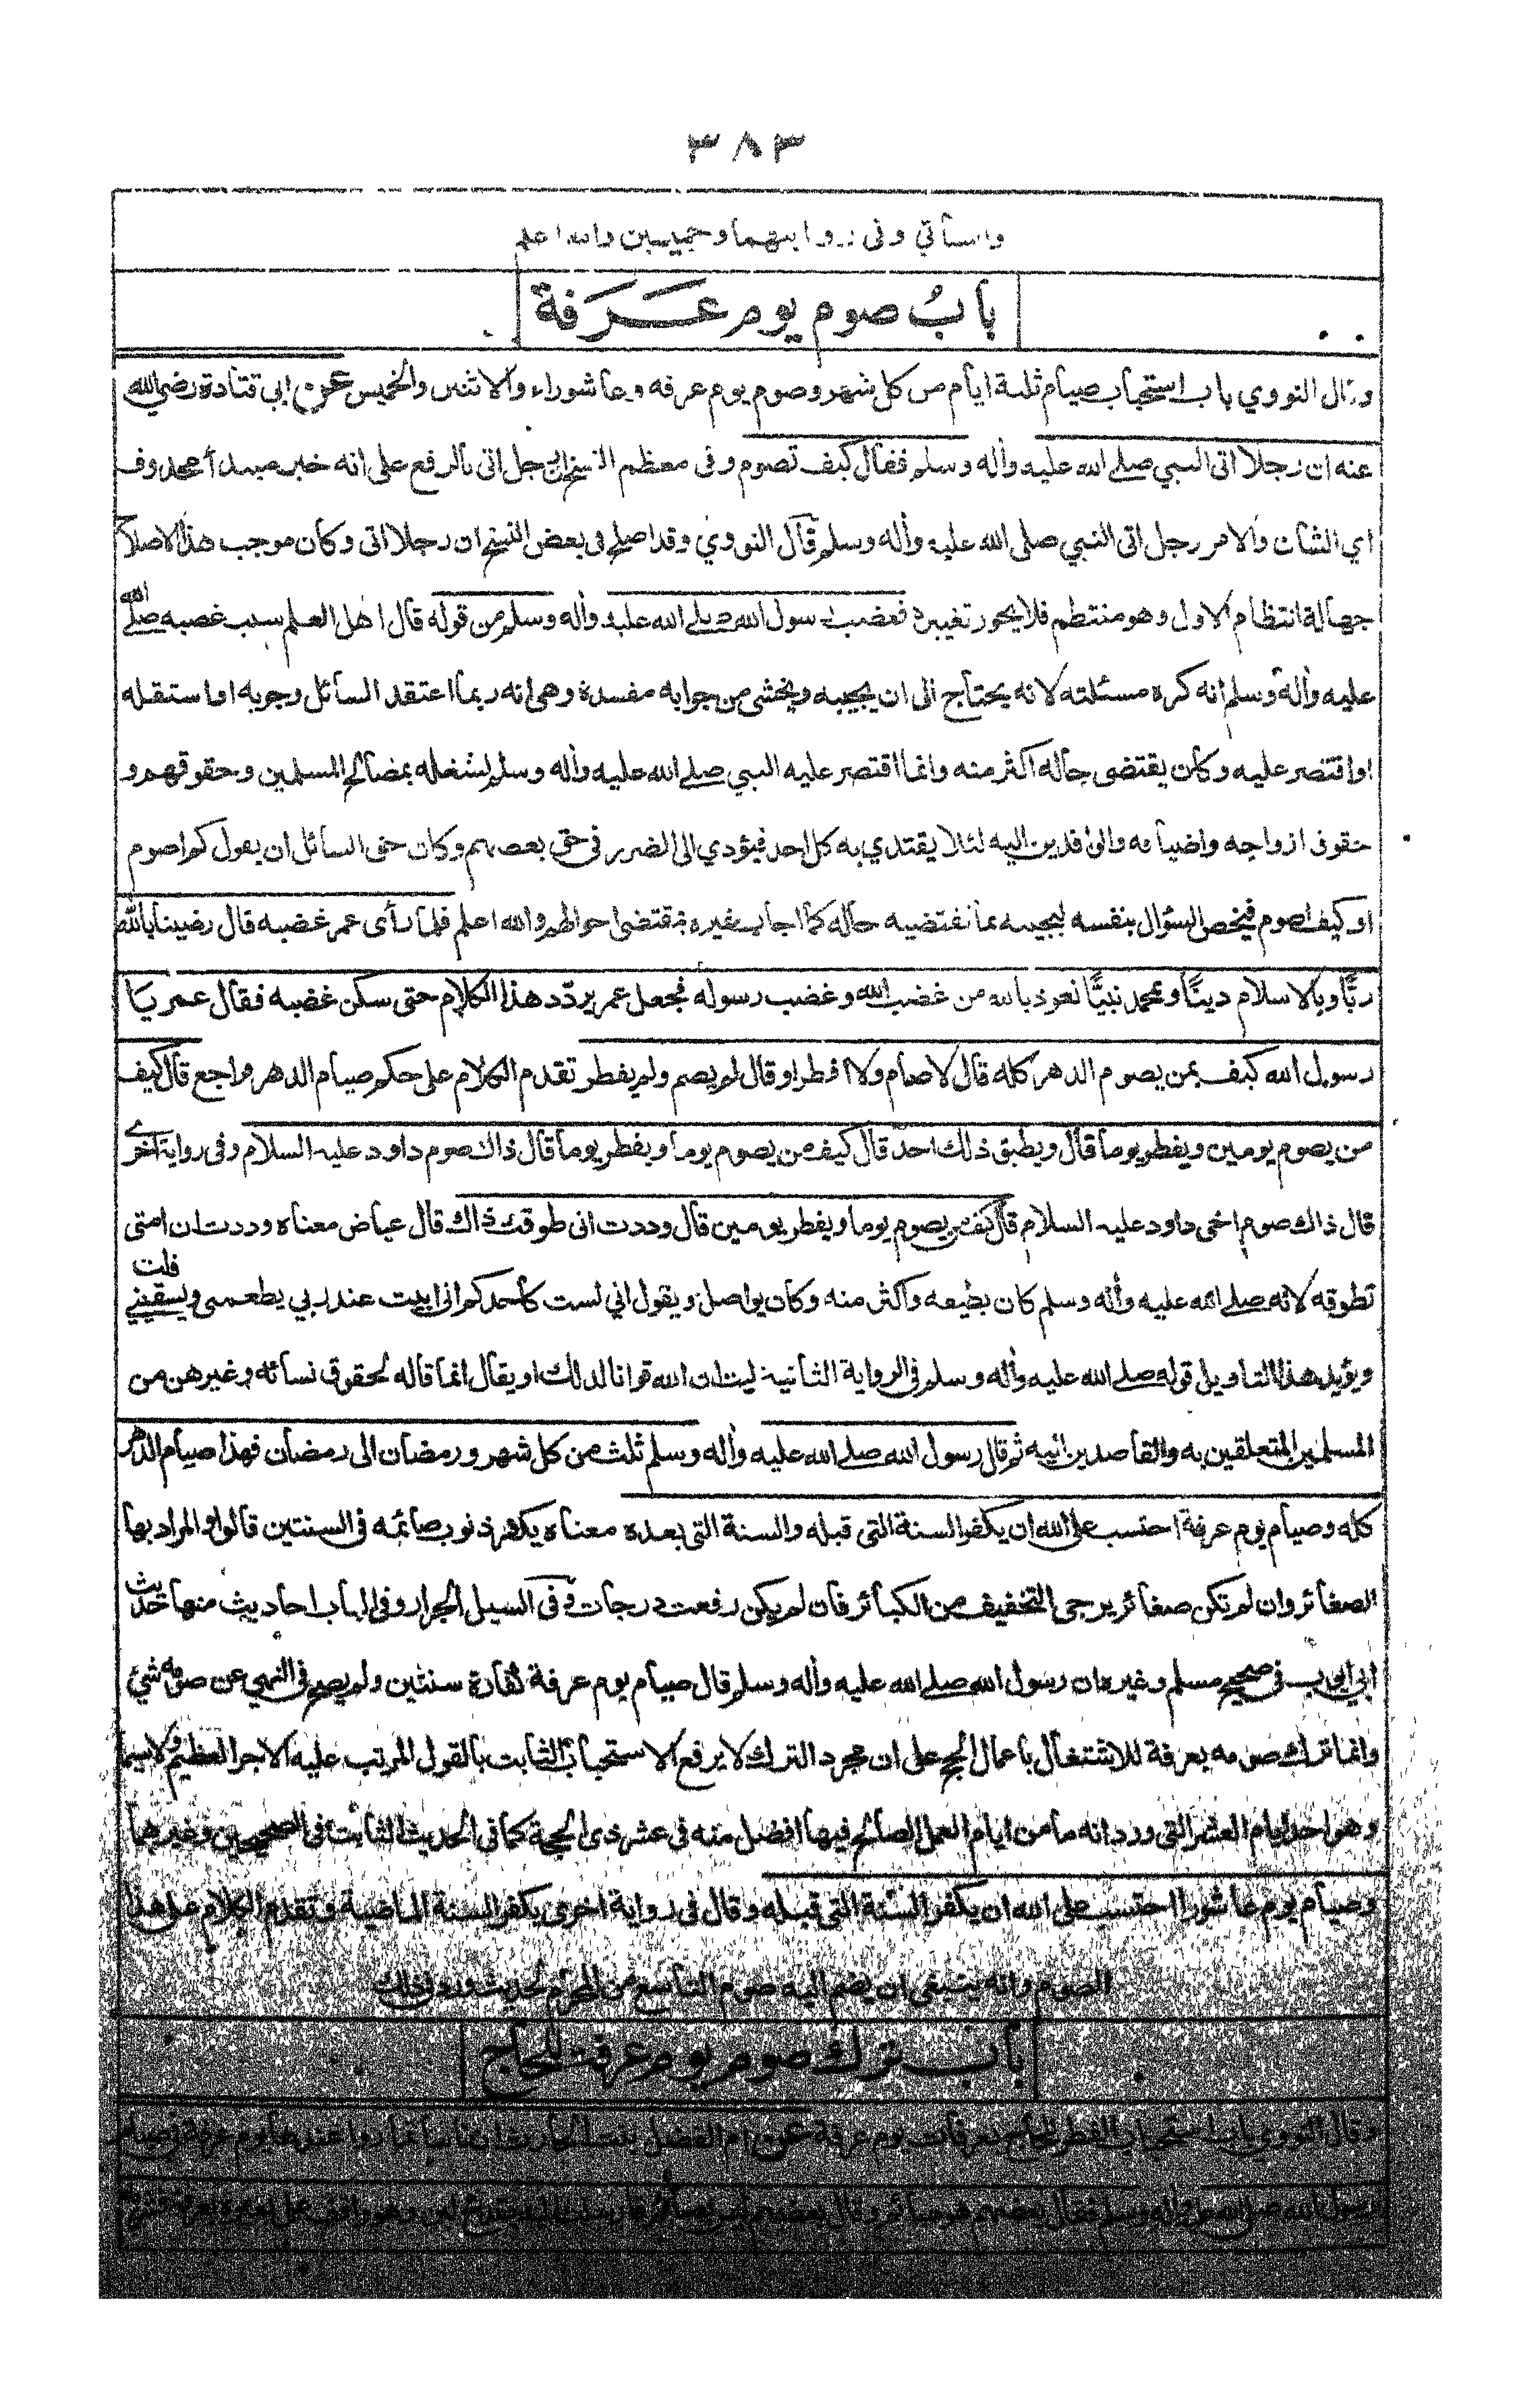 ٣٨٣
والنسائي وفي روايتهما وخميسين والله اعلم
باب صوم يوم عرفة
وقال النووي باب استحباب صيام ثلثة ايام من كل شهر وصوم يوم عرفه وعاشوراء والاثنين والخميس عن ابي قتادة رضي الله
عنه ان رجلا اتى النبي صلى الله عليه وأله وسلم فقال كيف تصوم وفى معظم النسخ رجل اتى بالرفع على انه خبر مبتدأ محذوف
اي الشان والامر رجل اتى النبي صلى الله عليه وأله وسلم قال النووي وقد اصلح فى بعض النسخ ان رجلا اتى وكان موجب هذا الاصلاح
جهالة انتظام الاول وهو منتظم فلا يجوز تغييره فغضب رسول الله صلى الله عليه وأله وسلم من قوله قال اهل العلم سبب غضبه صلى الله
عليه وأله وسلم انه كره مسئلته لانه يحتاج الى ان يجيبه ويخشى من جوابه مفسدة وهى انه ربما اعتقد السائل وجوبه او استقله
او اقتصر عليه وكان يقتضى حاله اكثر منه وانما اقتصر عليه النبي صلى الله عليه وأله وسلم لشغله بمصالح المسلمين وحقوقهم و
حقوق ازواجه واضيافه والوافدين اليه لئلا يقتدي به كل احد فيؤدي الى الضرر فى حق بعضهم وكان حق السائل ان يقول كم اصوم
او كيف اصوم فيخص السؤال بنفسه ليجيبه بما تقتضيه حاله كما اجاب غيره بمقتضى احوالهم والله اعلم فلما رأى عمر غضبه قال رضينا بالله
ربًّا وبالاسلام دينًا وبمحمد نبيًّا نعوذ بالله من غضب الله وغضب رسوله فجعل عمر يردّد هذا الكلام حتى سكن غضبه فقال عمر يا
رسول الله كيف بمن يصوم الدهر كله قال لا صام ولا افطر او قال لم يصم ولم يفطر تقدم الكلام على حكم صيام الدهر واجع قال كيف
من يصوم يومين ويفطر يوما قال ويطيق ذلك احد قال كيف من يصوم يوما ويفطر يوما قال ذاك صوم داود عليه السلام وفى رواية اخرى
قال ذاك صوم اخى داود عليه السلام قال كيف من يصوم يوما ويفطر يومين قال وددت انى طوقت ذاك قال عياض معناه وددت ان امتى
تطوقه لانه صلى الله عليه وأله وسلم كان يطيقه واكثر منه وكان يواصل ويقول اني لست كأحدكم انى ابيت عند ربي يطعمنى ويسقيني قلت
ويؤيد هذا التاويل قوله صلى الله عليه وأله وسلم فى الرواية الثانية ليت ان الله قوانا لذلك او يقال انما قاله لحقوق نسائه وغيرهن من
المسلمين المتعلقين به والقاصدين اليه ثم قال رسول الله صلى الله عليه وأله وسلم ثلث من كل شهر ورمضان الى رمضان فهذا صيام الدهر
كله وصيام يوم عرفة احتسب على الله ان يكفر السنة التى قبله والسنة التى بعده معناه يكفر ذنوب صائمه فى السنتين قالوا والمراد بها
الصغائر وان لم تكن صغائر يرجى التخفيف من الكبائر فان لم يكن رفعت درجات و فى السيل الجرار وفى الباب احاديث منها حديث
ابي ايوب فى صحيح مسلم وغيره ان رسول الله صلى الله عليه وأله وسلم قال صيام يوم عرفة كفارة سنتين ولم يصح فى النهي عن صومه شئ
وانما ترك صومه بعرفة للاشتغال باعمال الحج على ان مجرد الترك لا يرفع الاستحباب الثابت بالقول المرتب عليه الاجر العظيم ولاسيما
وهو احد ايام العشر التى ورد انه ما من ايام العمل الصالح فيها افضل منه فى عشر ذى الحجة كما فى الحديث الثابت فى الصحيحين وغيرهما
وصيام يوم عاشورا احتسب على الله ان يكفر السنة التى قبله وقال فى رواية اخرى يكفر السنة الماضية وتقدم الكلام على هذا
الصوم وانه ينبغى ان يضم اليه صوم التاسع من المحرم لحديث ورد فى ذلك
باب ترك صوم يوم عرفة للحاج
وقال النووي باب استحباب الفطر للحاج بعرفات يوم عرفة عن ام الفضل بنت الحارث ان ناسا تماروا عندها يوم عرفة فى صيام
رسول الله صلى الله عليه وأله وسلم فقال بعضهم هو صائم وقال بعضهم ليس بصائم فارسلت اليه بقدح لبن وهو واقف على بعيره بعرفة فشربه